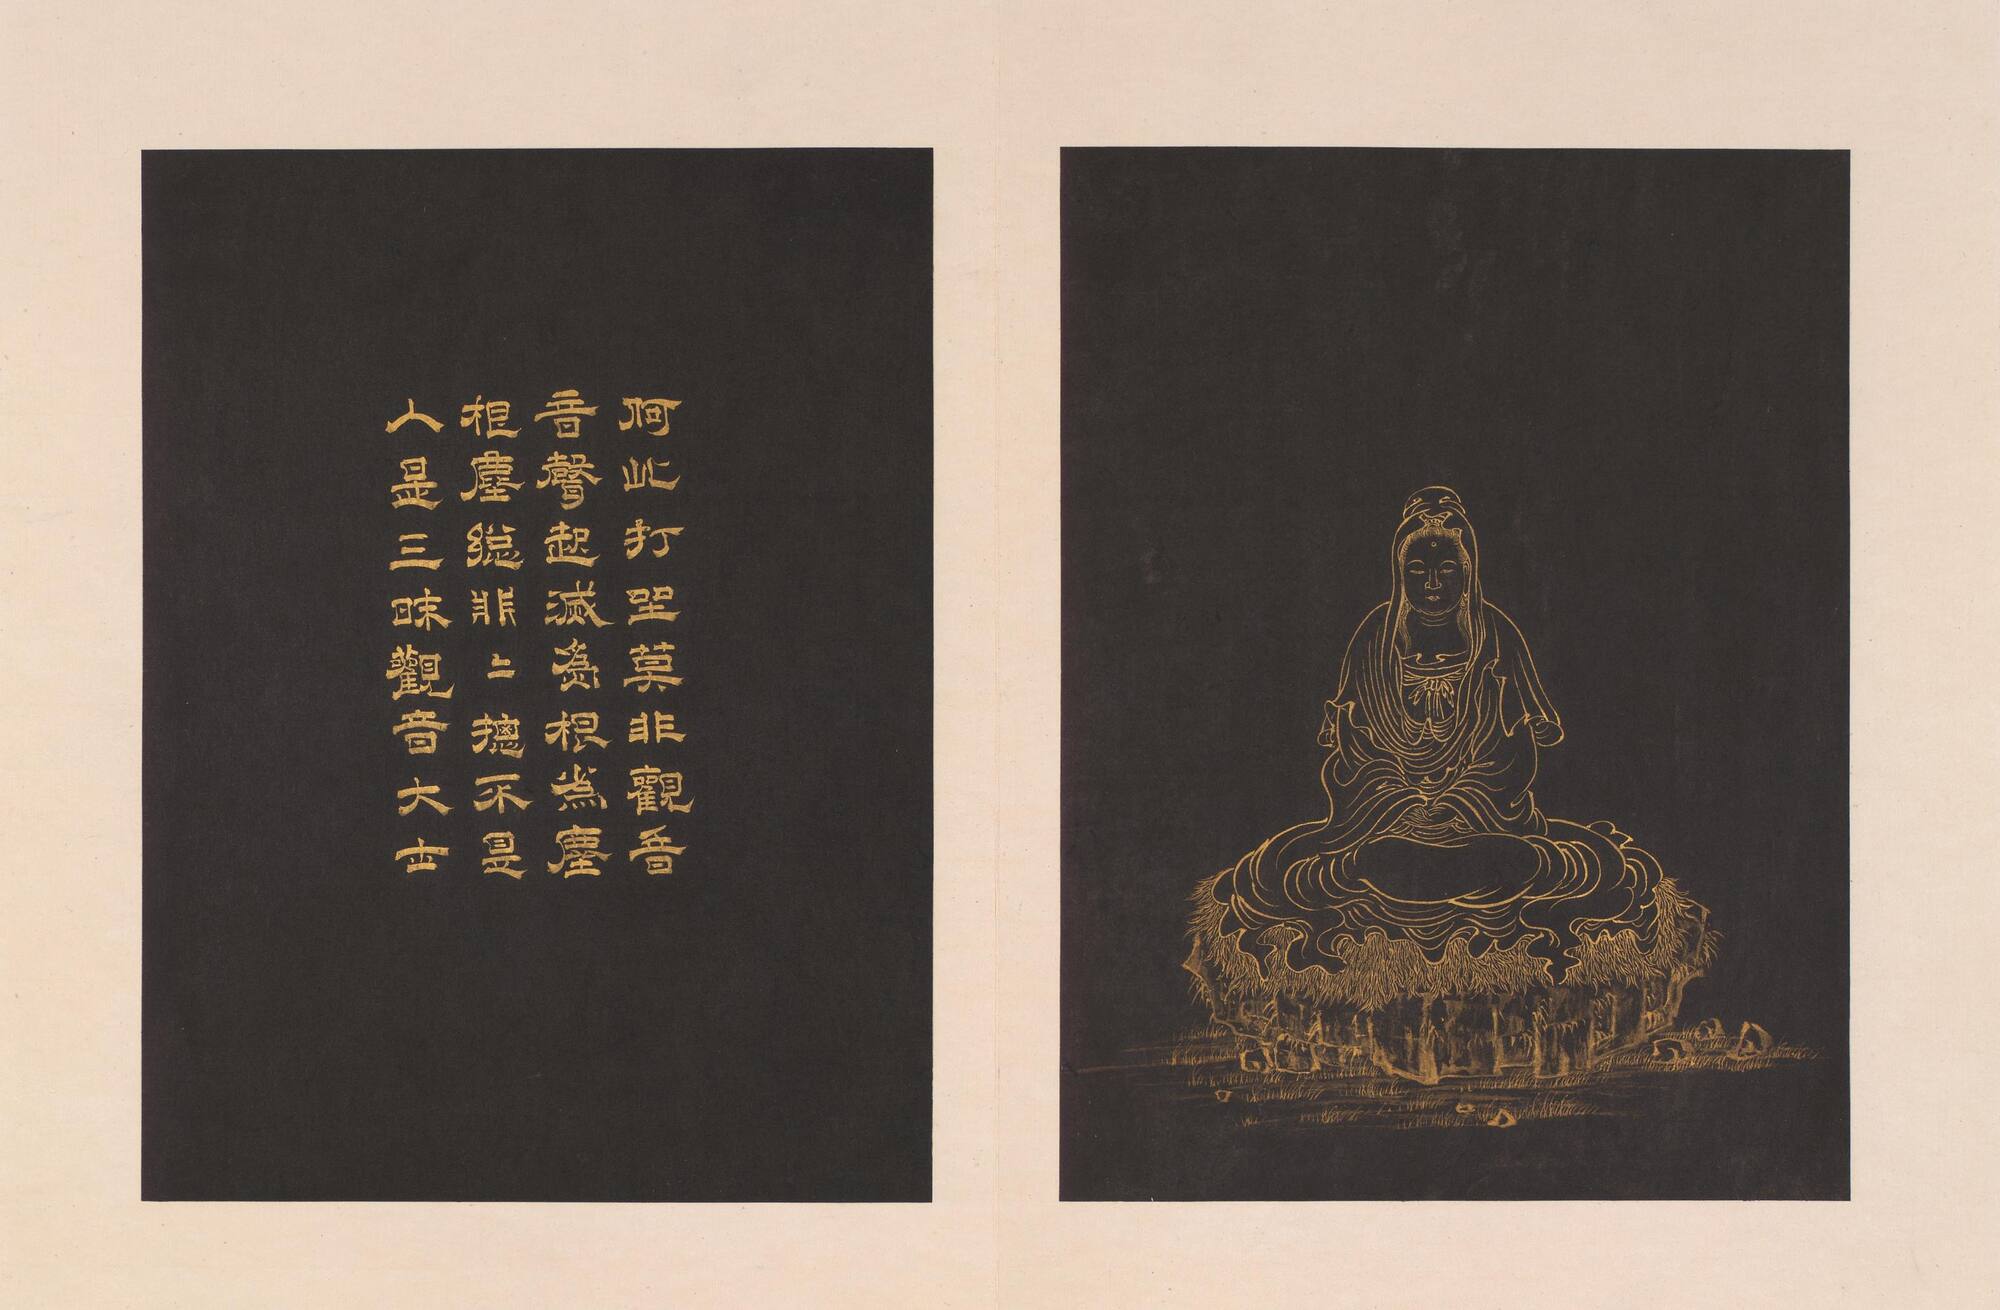 何此打坐莫非觀音
音聲起滅為根為塵
根塵總非〻揔不是
人是三昧觀音大士